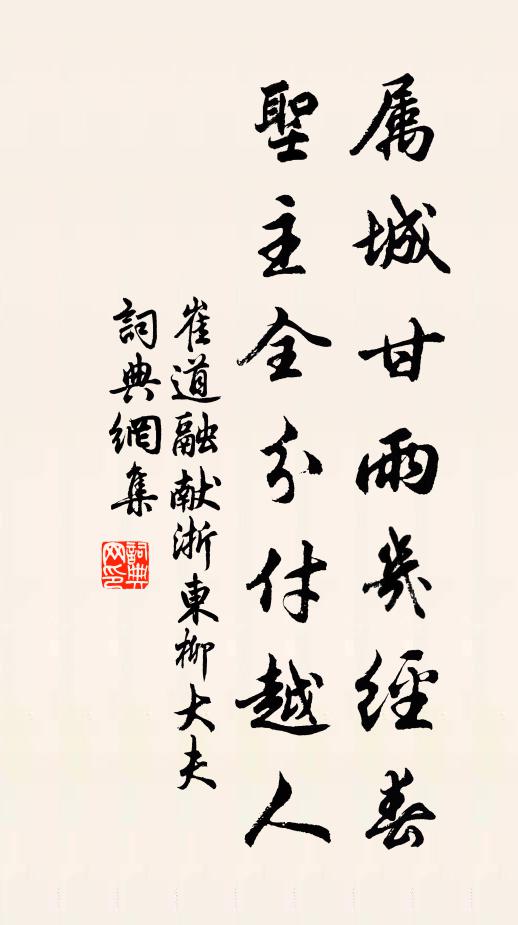 属城甘雨幾經春
聖主全分付越人
崔道融献浙東柳大夫
詞典網集
詞典网印